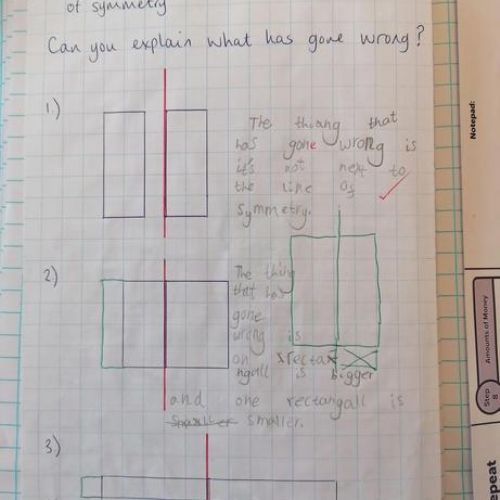 of symmetry
Can you explain what has gone wrong?
1.)
The thiang that
has gone wrong is
it's not next to
the line of
symmetry.
2)
The thing
that has
gone
wrong is
on recta
ngall is bigger
and one rectangall is
smaller.
3)
Notepad:
Amounts of Money
Step
8
peat